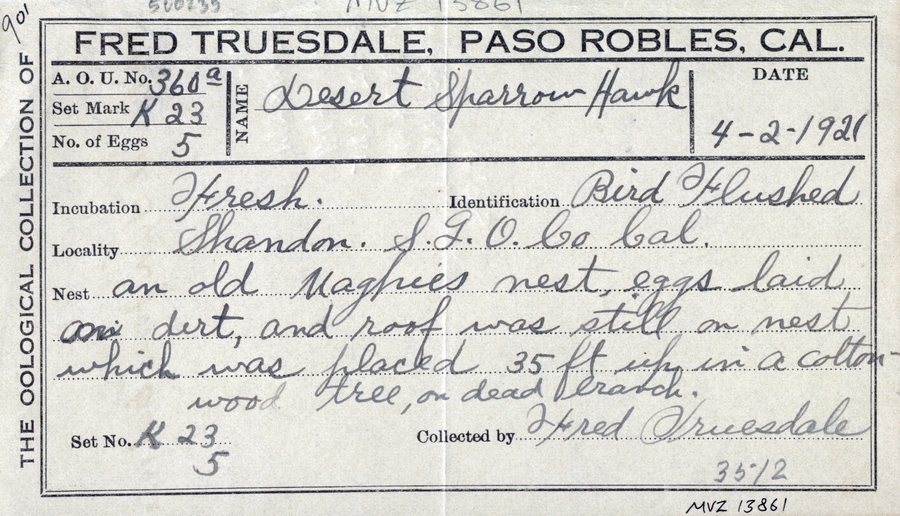 901
MVZ 13861
FRED TRUESDALE, PASO ROBLES, CAL.
THE OOLOGICAL COLLECTION OF
A. O. U. No. 360a
Set Mark K 23
No. of Eggs 5
NAME Desert Sparrow Hawk
DATE
4-2-1921
Incubation Fresh. Identification Bird Flushed
Locality Shandon. S.L.O. Co Cal.
Nest an old Magpies nest, eggs laid
on dirt, and roof was still on nest
which was placed 35 ft up in a cotton-
wood tree, on dead branch.
Set No. K 23
5
Collected by Fred Truesdale
35/2
MVZ 13861